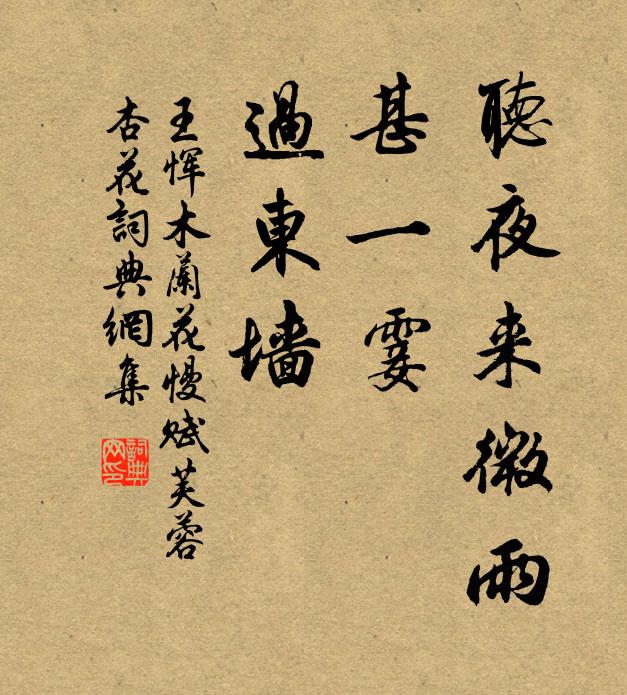 聽夜来微雨
甚一霎
過東墻
王惲木蘭花慢賦芙蓉
杏花詞典網集
詞典网印